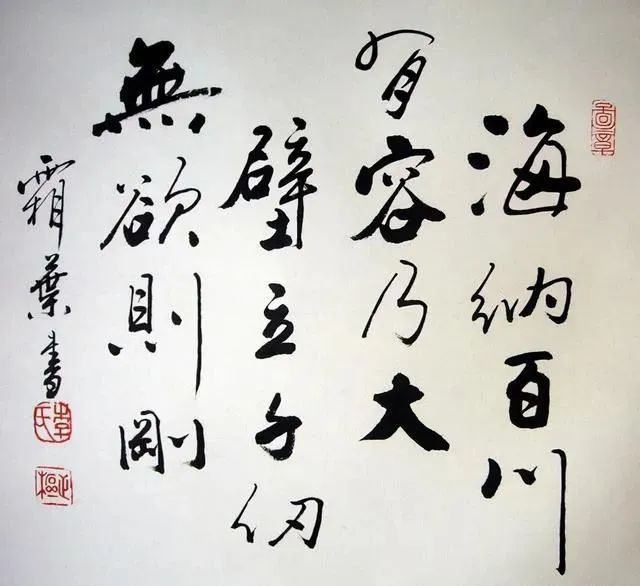 海納百川
有容乃大
壁立千仞
無欲則剛
霜葉書